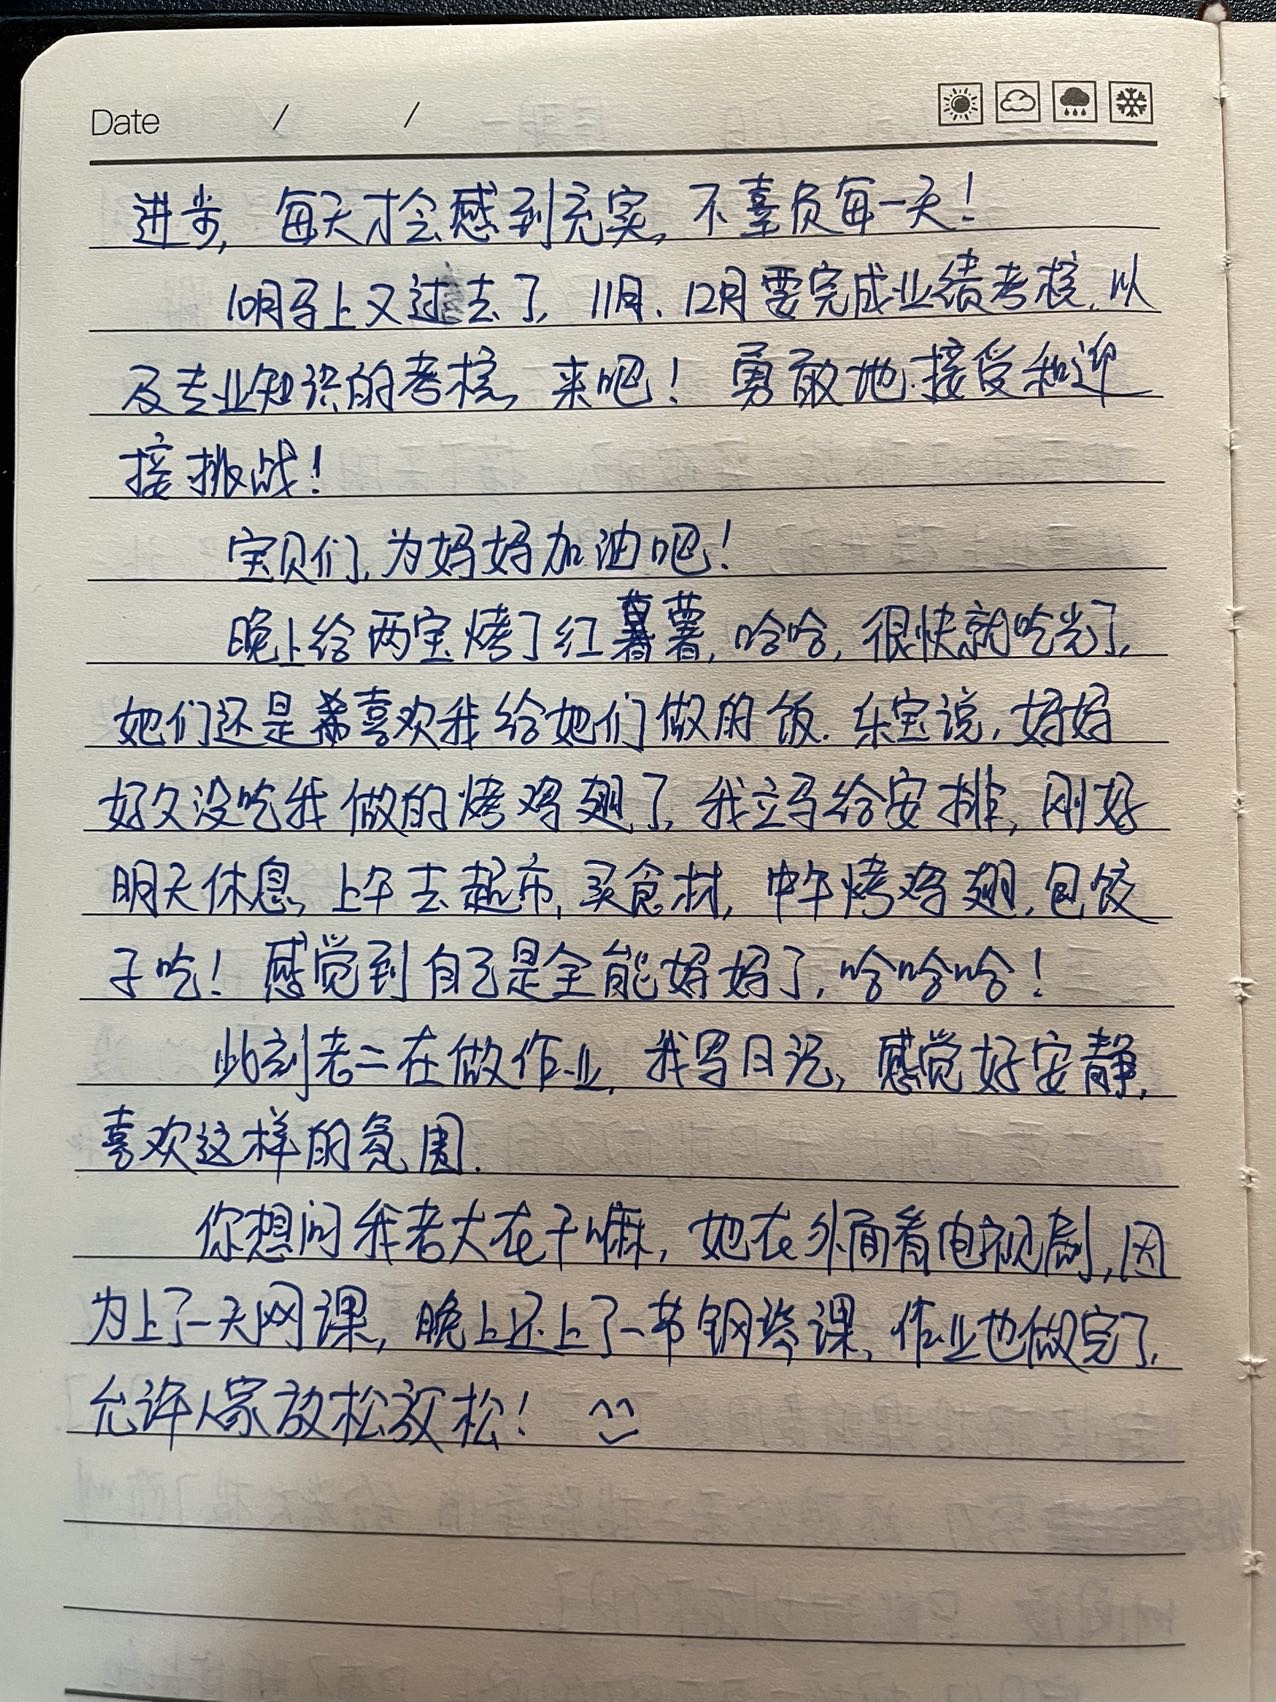 Date / /
进步, 每天才会感到充实, 不辜负每一天!
10月马上又过去了, 11月、12月要完成业绩考核, 以
及专业知识的考核, 来吧! 勇敢地接受和迎
接挑战!
宝贝们, 为妈妈加油吧!
晚上给两宝烤了红薯薯, 哈哈, 很快就吃光了,
她们还是希喜欢我给她们做的饭. 乐宝说, 妈妈
好久没吃我做的烤鸡翅了, 我立马给安排, 刚好
明天休息, 上午去超市, 买食材, 中午烤鸡翅, 包饺
子吃! 感觉到自己是全能妈妈了, 哈哈哈!
此刻老二在做作业, 我写日记, 感觉好安静,
喜欢这样的氛围.
你想问我老大在干嘛, 她在外面看电视剧, 因
为上了一天网课, 晚上还上了一节钢琴课, 作业也做完了,
允许人家放松放松! ^^